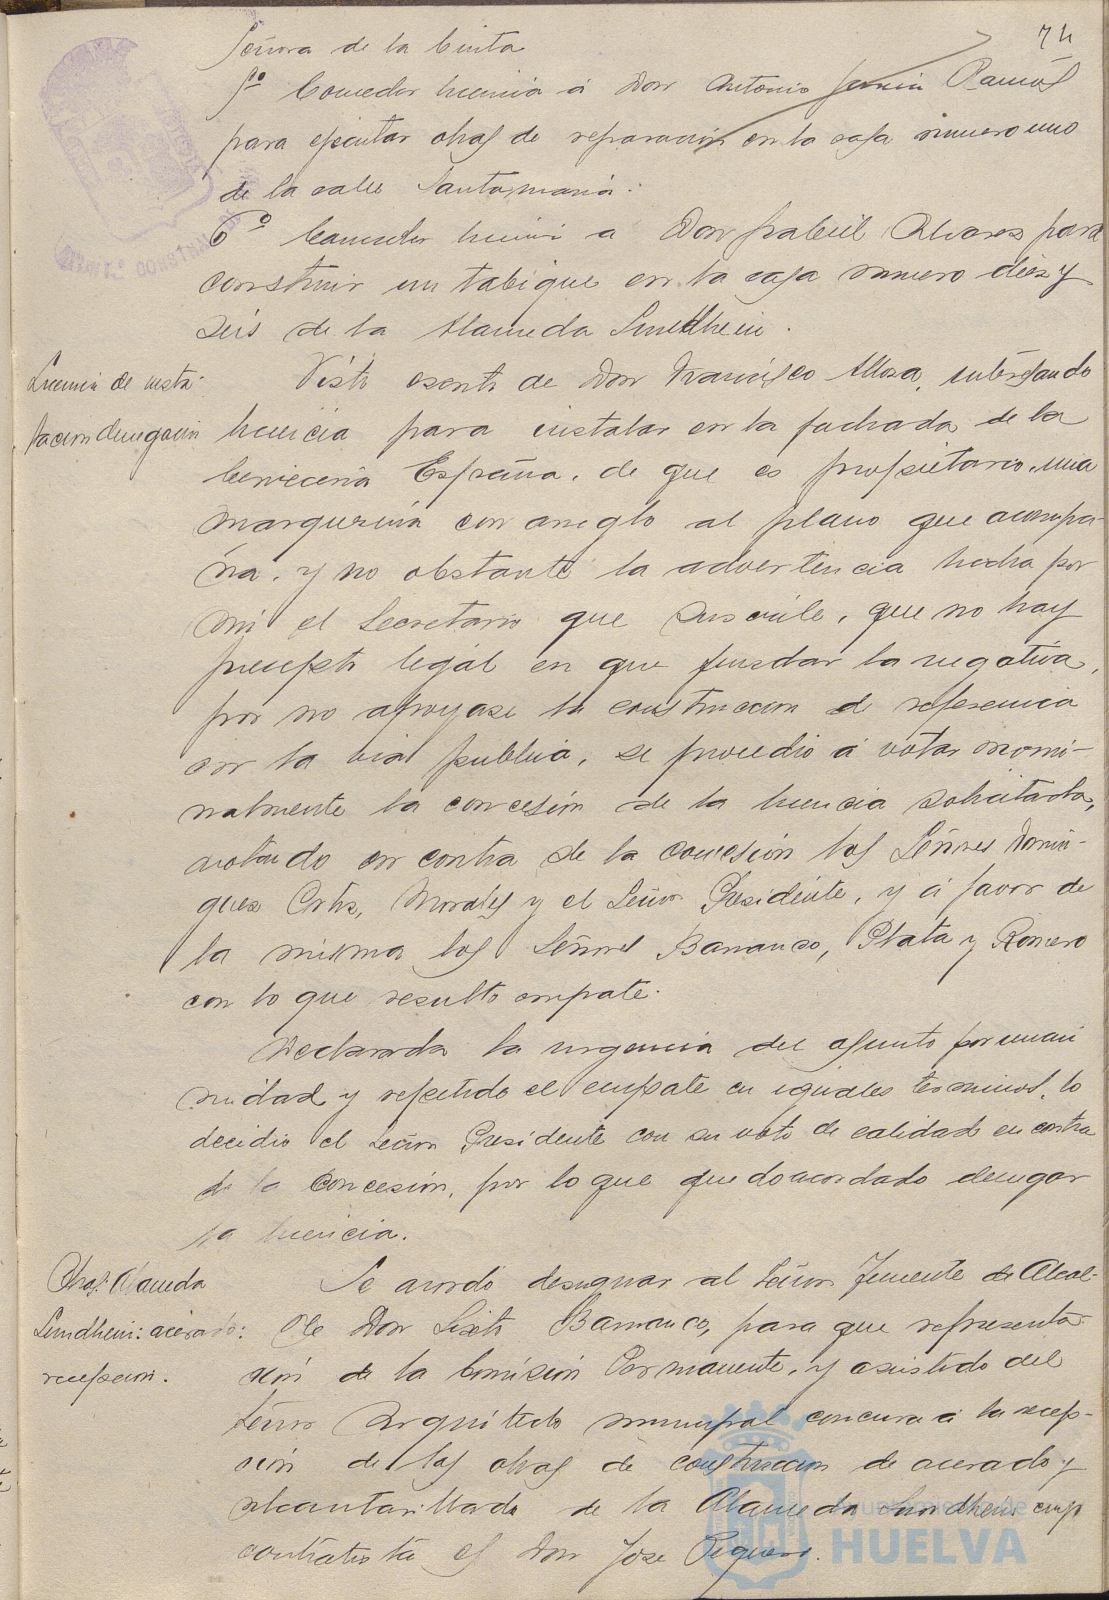 74
Señora de la Cinta
5º Conceder licencia á Don Antonio Ramos
para ejecutar obras de reparación en la casa número uno
de la calle Santa maría.
6º Conceder licencia a Don Gabriel Alvarez para
construir un tabique en la casa número diez y
seis de la Alameda Sundheim.
Licencia de insta-
lacion denegacion
Visto escrito de Don Francisco Mora, interesando
licencia para instalar en la fachada de la
Cervecería España, de que es propietario, una
marquesina con arreglo al plano que acompa-
ña, y no obstante la advertencia hecha por
mi el Secretario que suscribe, que no hay
precepto legal en que fundar la negativa,
por no apoyarse la construccion de referencia
en la via publica, se procedio á votar nomi-
nalmente la concesión de la licencia solicitada,
votando en contra de la concesión los Señores Domin-
guez Ortiz, Morales y el Señor Presidente, y á favor de
la misma los Señores Barranco, Plata y Romero
con lo que resulto empate.
Declarada la urgencia del asunto por unani
midad y repetido el empate en iguales terminos, lo
decidio el Señor Presidente con su voto de calidad en contra
de la concesión, por lo que quedo acordado denegar
la licencia.
Obras Alameda
Sundheim: acerado:
recepcion.
Se acordó designar al Señor Teniente de Alcal-
de Don Sixto Barranco, para que representa
ción de la Comisión Permanente, y asistido del
Señor Arquitecto municipal concurra á la recep-
ción de las obras de construccion de acerado y
alcantarillado de la Alameda Sundheim cuyo
contratista es Don Jose Peguero.
Ayuntamiento de
HUELVA